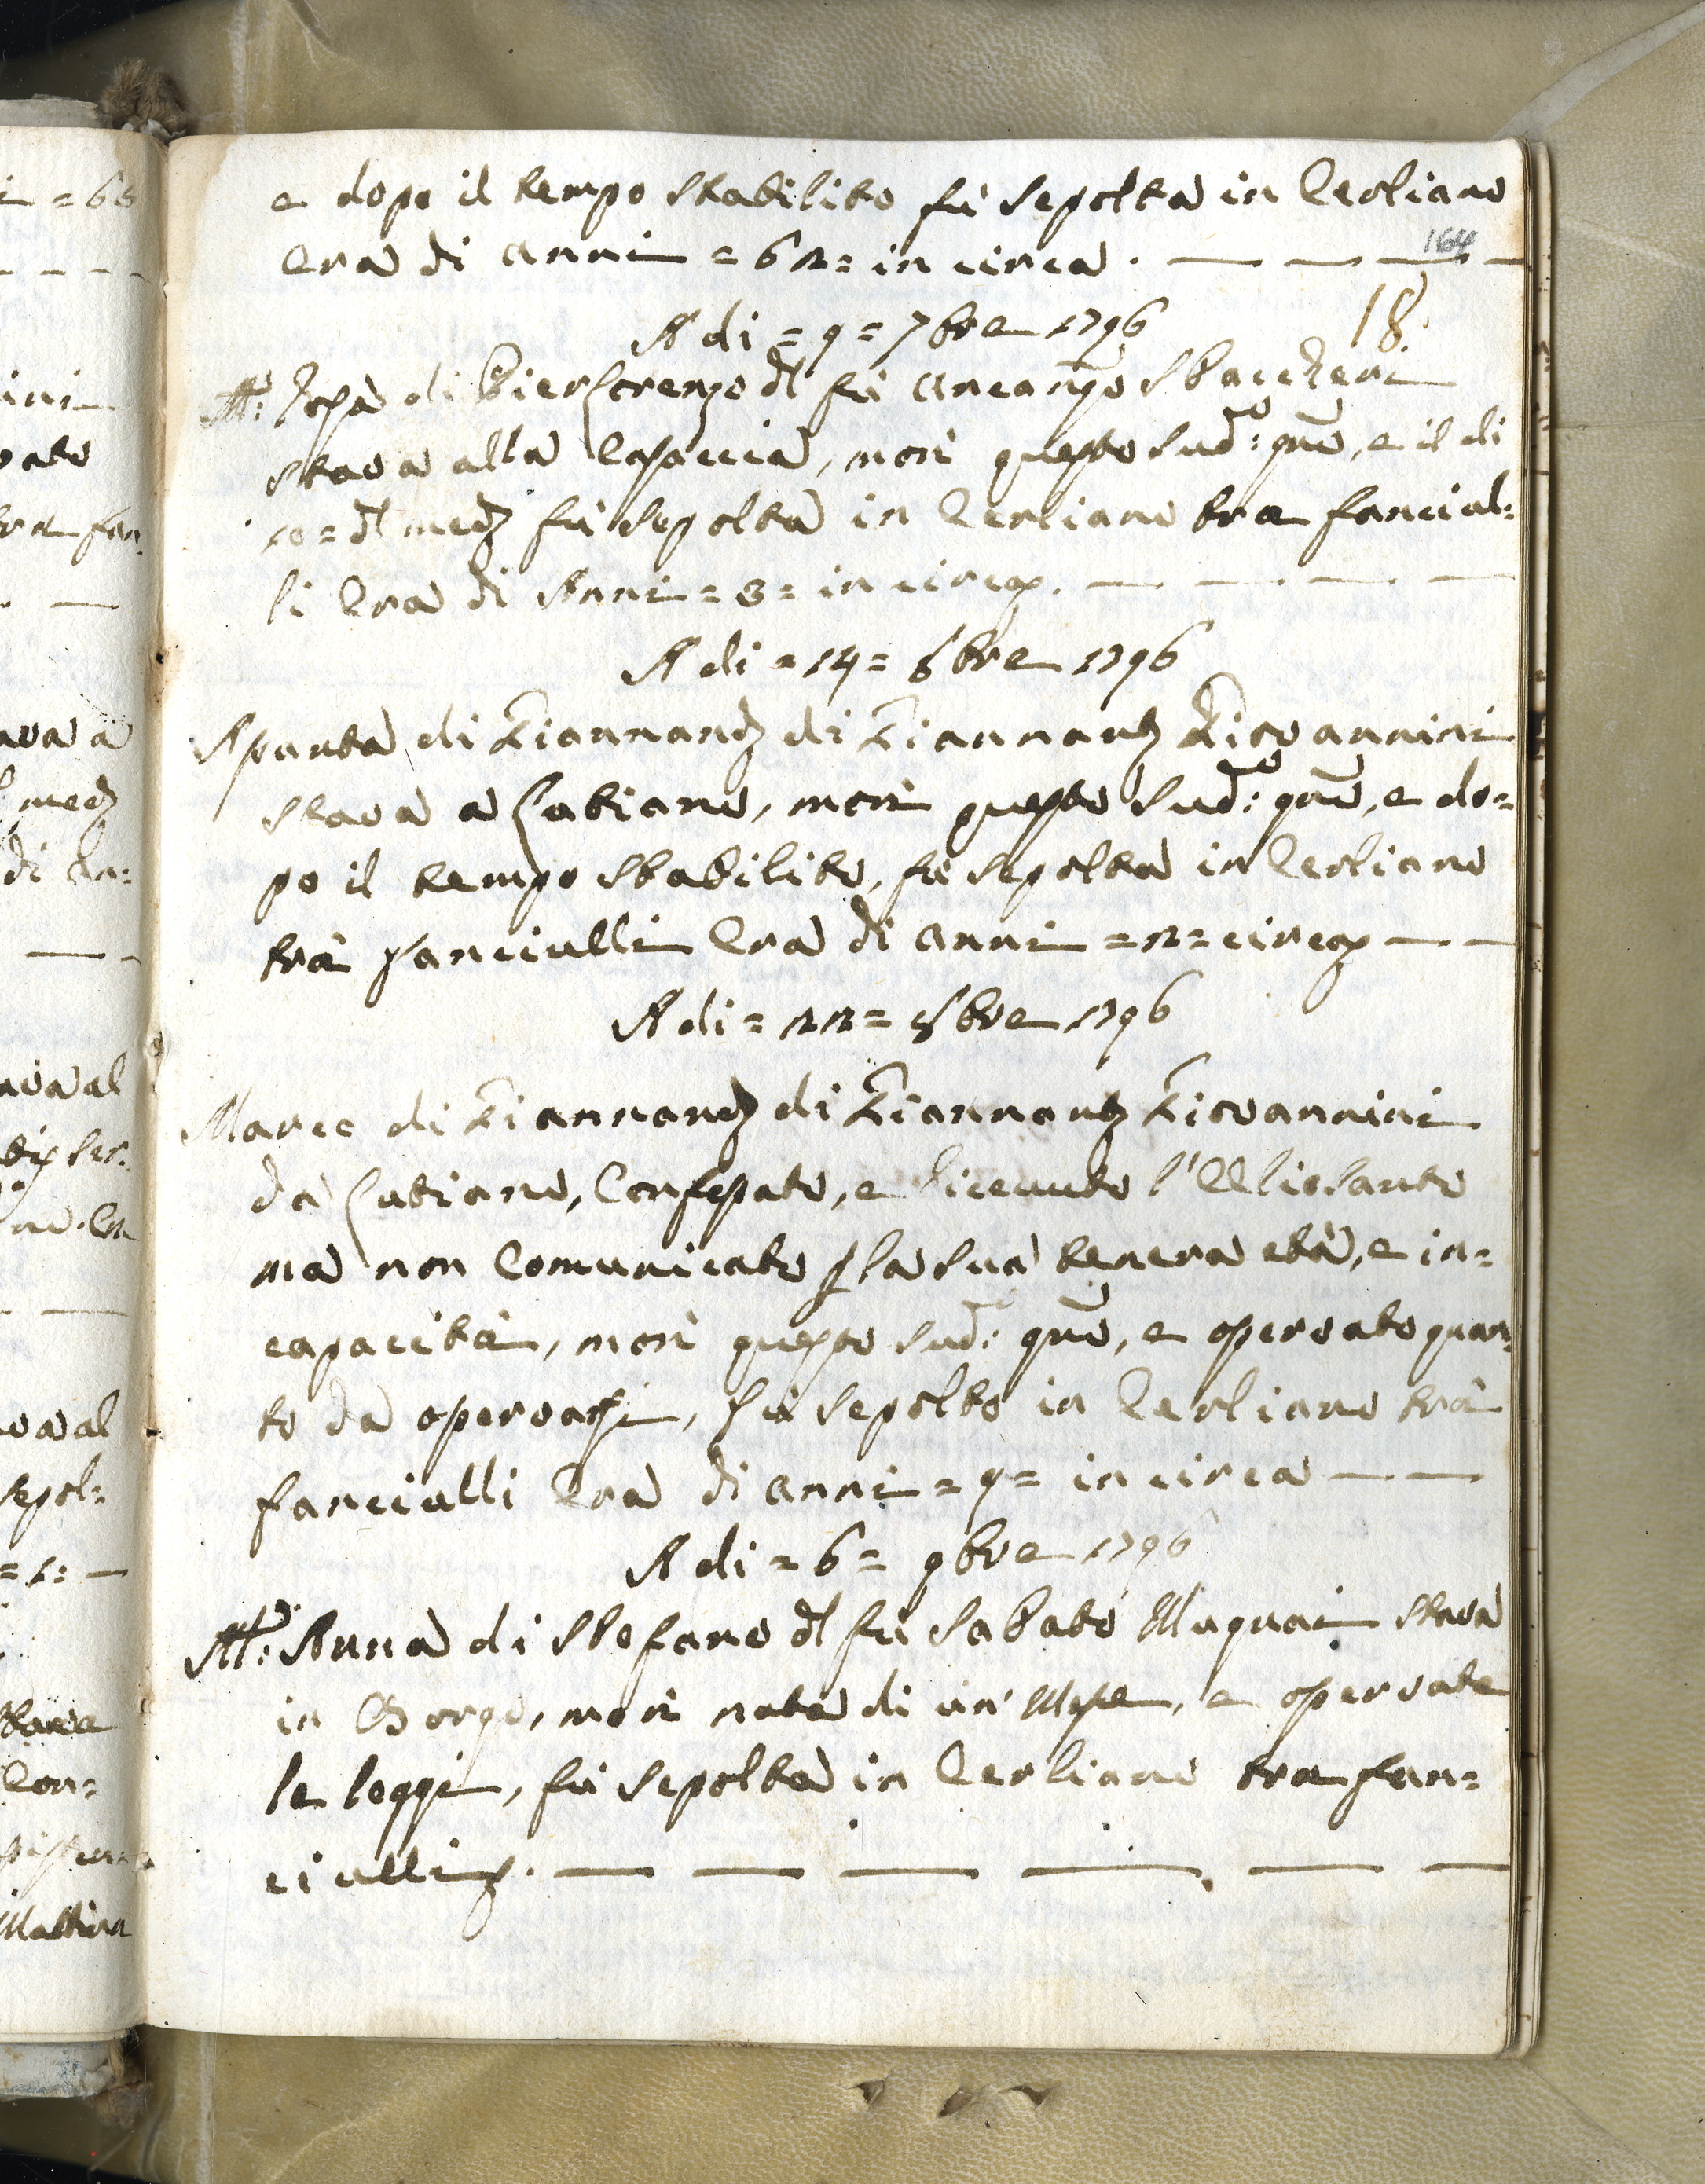 e dopo il tempo stabilito fù sepolta in Cerliano
Era di anni = 62 = in circa .
164
A di = 9 = 7bre 1796
18
M:ª Rosa di Pier Lorenzo dl fù Ancangso Sbaccheri
stava alla Capaccia, morì questo sud:º gnō, e il di
10 = dl medº fù sepolta in Cerliano tra fanciul:
li Era di Anni = 3 = in circa.
A di = 14 = 8bre 1796
Assunta di Giannantº di Giannantº Giovannini
stava a Lutiano, morì questo sud:º gnō, e do=
po il tempo stabilito, fù sepolta in Cerliano
trà fanciulli Era di anni = 2 = circa
A di = 22 = 8bre 1796
Marco di Giannantº di Giannantº Giovannini
da Lutiano, Confessato, e Ricevuto l'Olio Santo
ma non Comunicato p la sua tenera età, e in=
capacità, morì questo sud: gnō, e osservato quan=
to da osservarsi, fù sepolto in Cerliano trà
fanciulli Era di anni = 9 = in circa
A di = 6 = 9bre 1796
M:ª Anna di Stefano dl fù Sabato Mugnai stava
in Borgo, morì nata di un' Mese, e osservate
le leggi, fù sepolta in Cerliano tra fan=
ciulli.